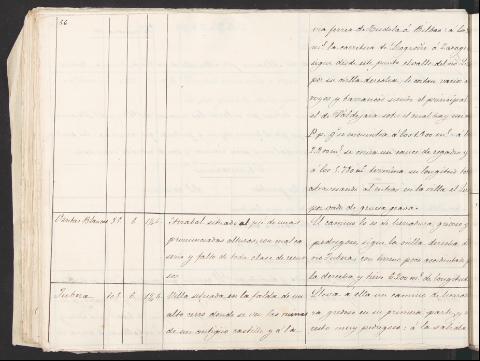 56
via ferrea de Tudela á Bilbao: á los
m.s la carretera de Logroño á Zarago
sigue desde este punto el valle del rio
por su orilla derecha, le cortan varios
royos y barrancos siendo el principal
el de Valdejara sobre el cual hay un
P.p. q.e se encuentra á los 1.900 m.s á l
2.200 m.s se cruza un cauce de regadio y
á los 5.770 m.s termina su longitud
atravesando al entrar en la villa el
por vado de gruesa grava.
Ventas Blancas 37. 6. 186. Arrabal situado al pié de unas
pronunciadas alturas, con mal ca
serio y falto de toda clase de recur
sos.
El camino lo es de herradura, guijoso y
pedregoso, sigue la orilla derecha de
rio Jubera, con terreno poco accidentado p
la derecha, y tiene 6.200 m.s de longitud
Jubera 101. 6. 186. Villa situada en la falda de un
alto cerro donde se ven las ruinas
de un antiguo castillo y á la
Lleva á ella un camino de herra
ra, guijoso en su primera parte, y
resto muy pedregoso: á la salida